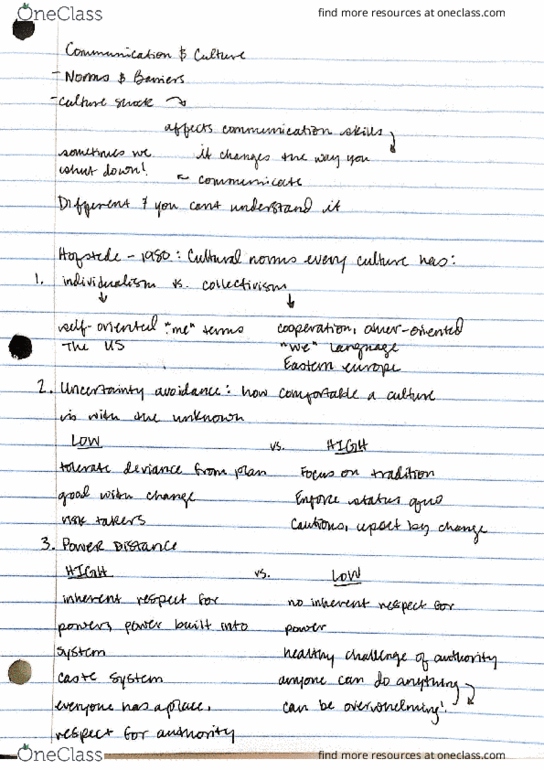 OneClass
find more resources at oneclass.com
Communication & Culture
- Norms & Barriers
- Culture shock →
affects communication skills
sometimes we it changes the way you
shut down! ← communicate
Different & you cant understand it
Hofstede - 1980: Cultural norms every culture has:
1. individualism vs. collectivism
self-oriented "me" terms cooperation, other-oriented
The US "we" language
Eastern europe
2. Uncertainty avoidance: how comfortable a culture
is with the unknown
LOW vs. HIGH
tolerate deviance from plan Focus on tradition
good with change Enforce status quo
risk takers Cautious, upset by change
3. Power Distance
HIGH vs. LOW
inherent respect for no inherent respect for
powers, power built into power
system healthy challenge of authority
caste system anyone can do anything
everyone has a place, can be overwhelming!
respect for authority
OneClass
find more resources at oneclass.com